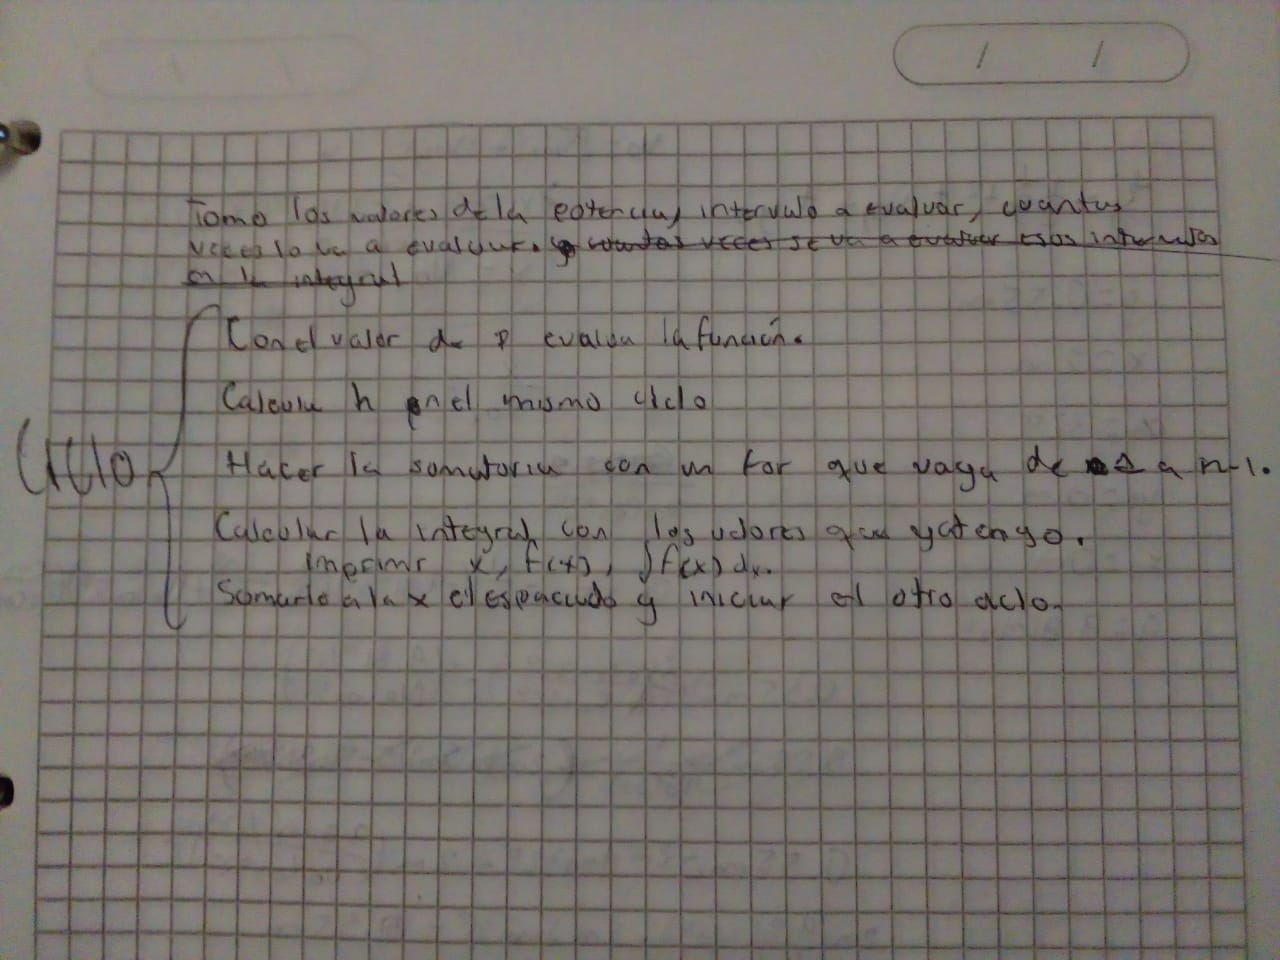 Tomo los valores de la potencia, intervalo a evaluar, cuantas
veces lo va a evaluar. y cuantas veces se va a evaluar esos intervalos
en la integral
Con el valor de P evalua la función.
Calcula h en el mismo ciclo
Ciclo
Hacer la somatoria con un for que vaya de 1 a n-1.
Calcular la integral con los valores que ya tengo.
imprimir x, f(x), ∫f(x) dx.
Sumarle a la x el espaciado y iniciar el otro ciclo.